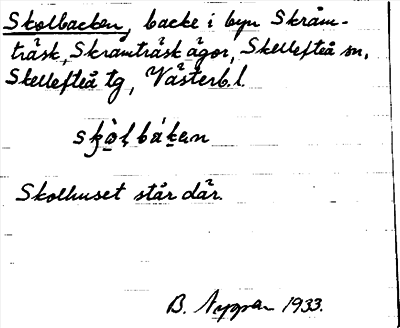 Skolbacken, backe i byn Skråm-
träsk, Skråmträsk ägor, Skellefteå sn,
Skellefteå tg, Västerb.l.
skòlbákan
Skolhuset står där.
B. 1933.